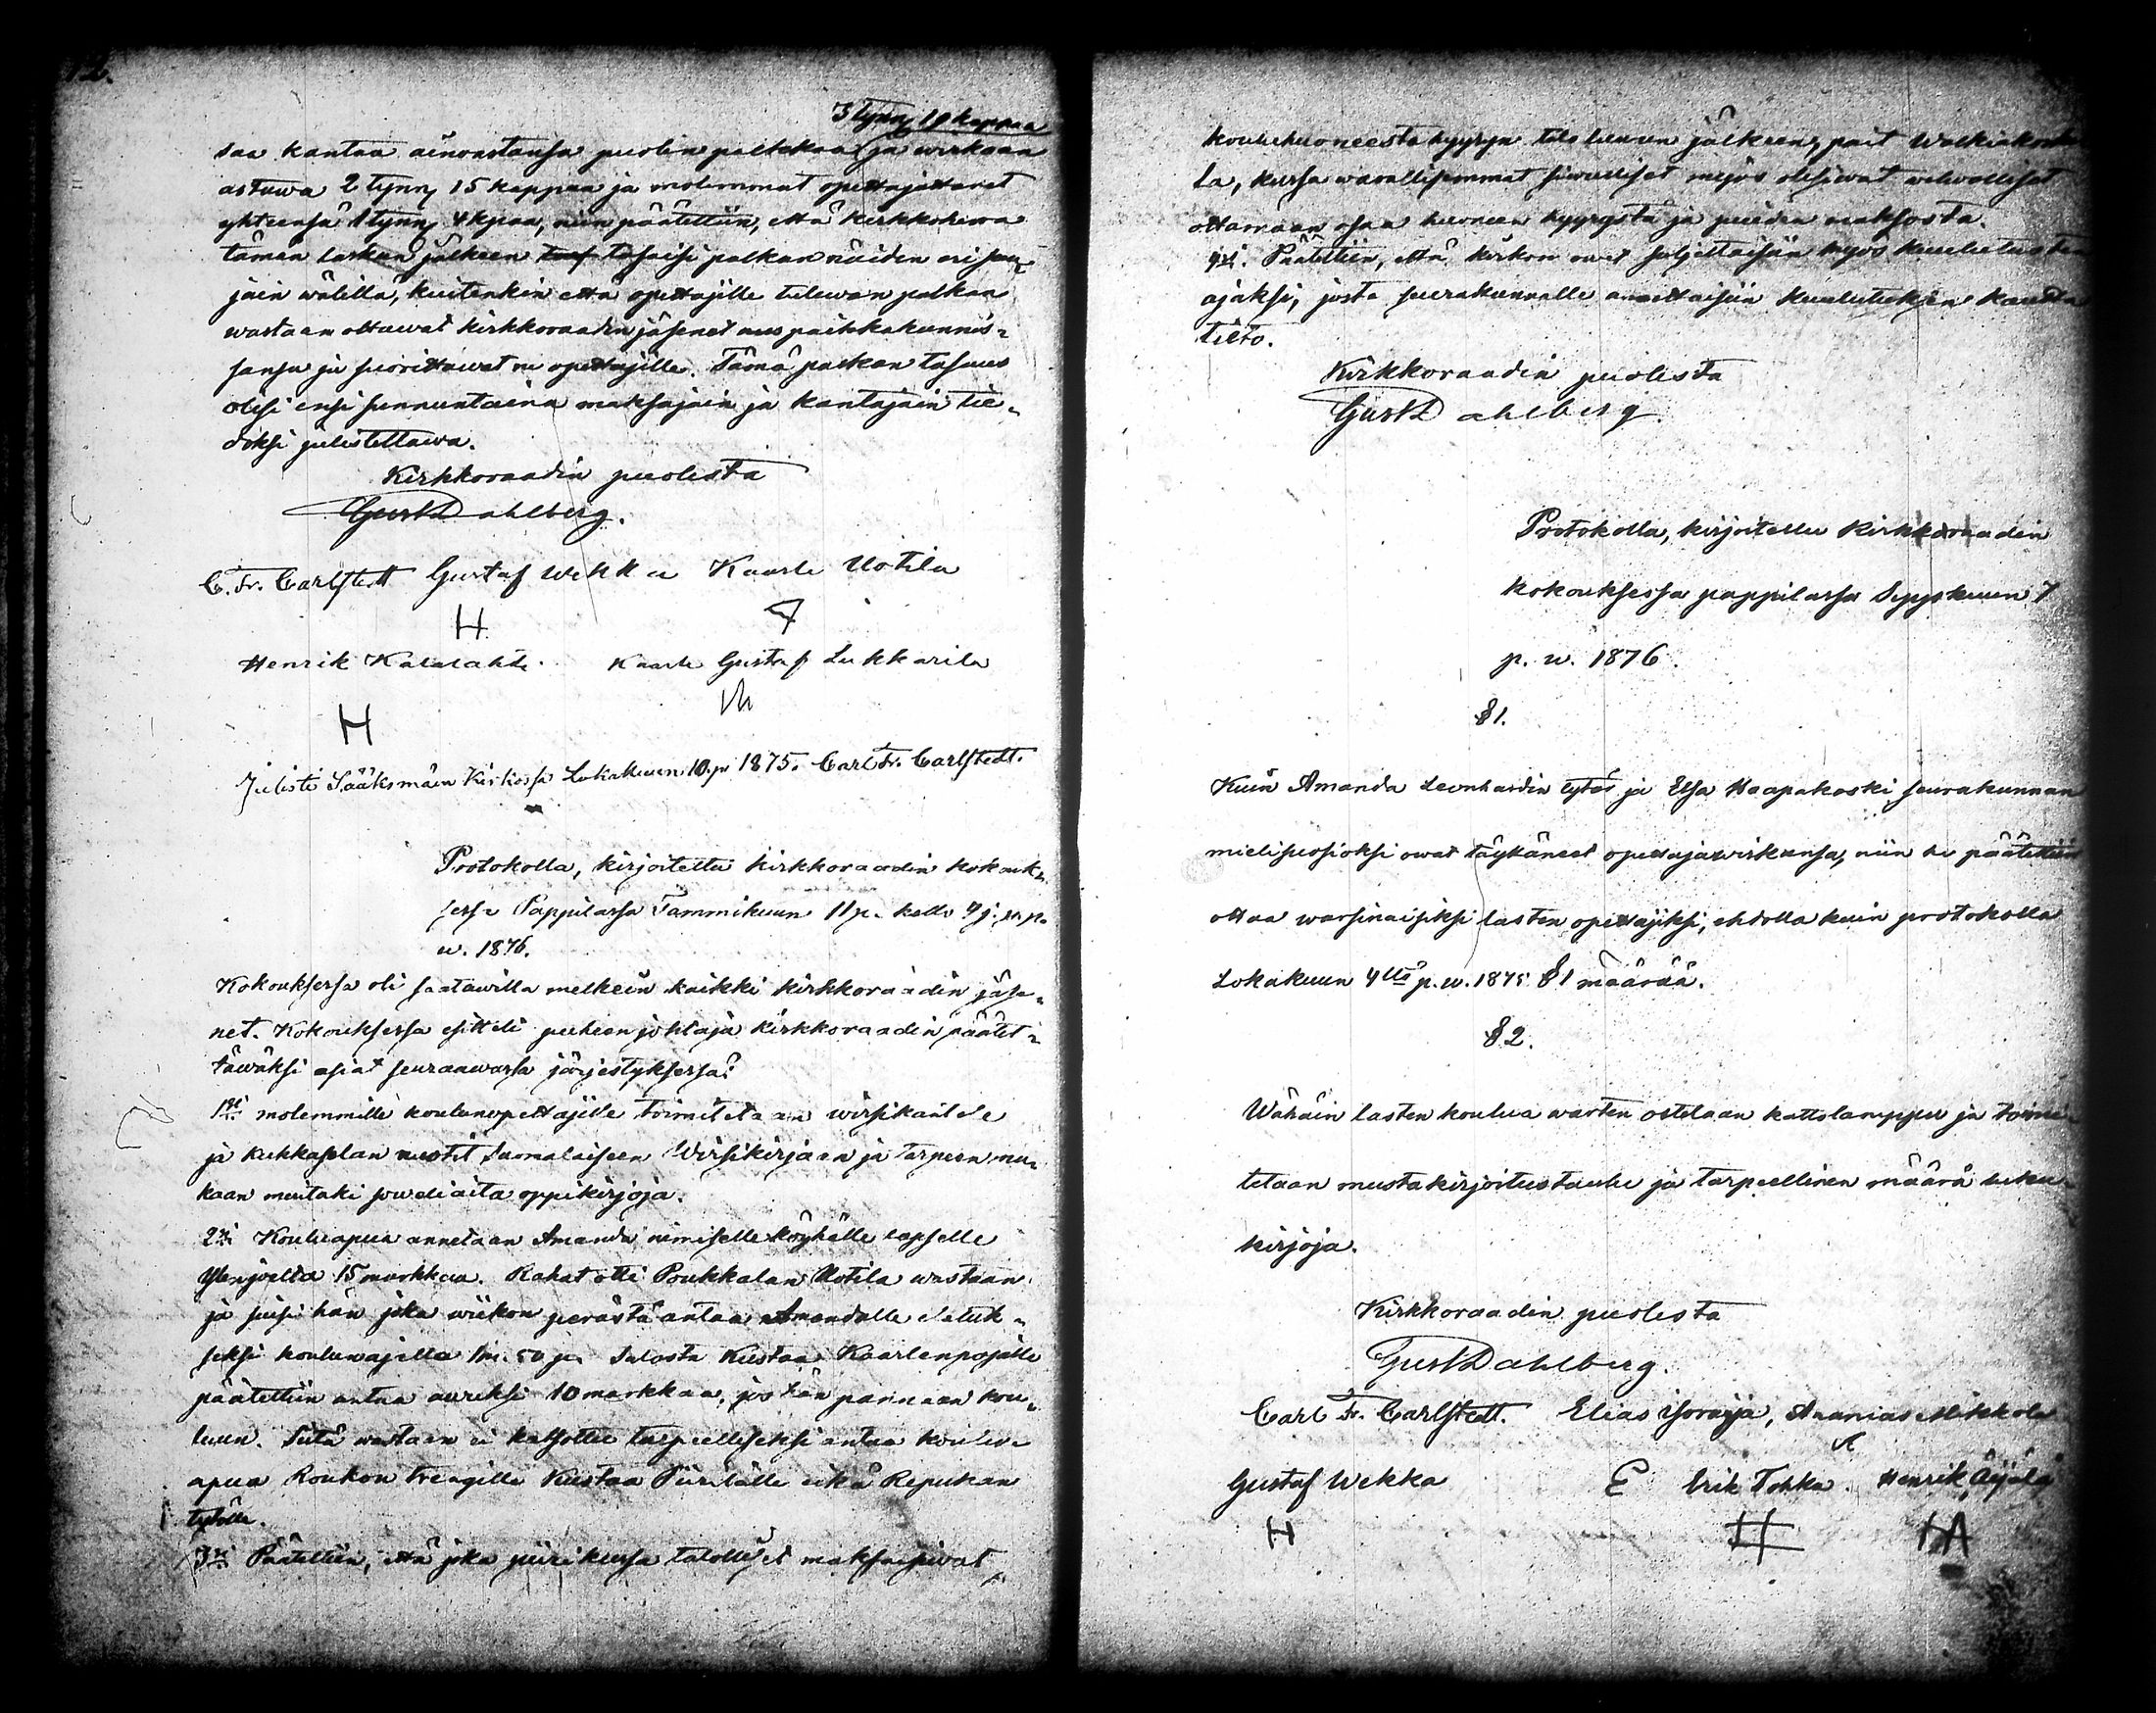 12.
3 tynn 10 kappaa
saa kantaa ainoastansa puolen palkkaa ja wirkaan
astuwa 2 tynn 15 kappaa ja molemmat opettajattaret
yhteensä 1 tynn 4 kpaa, niin päätettiin, että kirkkoherra
tämän laskun jälkeen tasaisi palkan näiden
jain wälillä, kuitenkin että opettajille tulewan palkan
wastaan ottawat kirkkoraadin jäsenet paikkakunnis-
sansa ja suorittawat ne opettajille. Tämä palkan tasaus
olisi ensi sunnuntaina maksajain ja kantajain tie-
doksi julistettawa.
Kirkkoraadin puolesta
Gust Dahlberg.
C. Fr. Carlstedt Gustaf Wekka Kaarle Uotila
H
Henrik Kalalahti. Kaarle Gustaf Lukkarila
H
Julisti Sääksmäen Kirkossa Lokakuun 10. p. 1875. Carl Fr. Carlstedt.
Protokolla, kirjoitettu kirkkoraadin kokouk-
sessa Pappilassa Tammikuun 11 p. kello 4 j. p. p.
w. 1876.
Kokouksessa oli saatawilla melkein kaikki kirkkoraadin jäse-
net. Kokouksessa esitteli puheenjohtaja kirkkoraadin päätet-
täwäksi asiat seuraawassa järjestyksessä:
1ksi molemmille koulunopettajille toimitetaan wirsikantele
ja Kukkaslan nuotit Suomalaiseen Wirsikirjaan ja tarpeen mu-
kaan muitaki soweliaita oppikirjoja.
2ksi Kouluapua annetaan Amanda nimiselle köyhälle lapselle
15 markkaa. Rahat otti Poukkalan Uotila wastaan
ja saisi hän joka wiikon perästä antaa Amandalle elatuk-
seksi kouluwajella 1 m. 50 p. Salosta Kustaa Kaarlenpojalle
päätettiin antaa awuksi 10 markkaa, jos hän pannaan kou-
luun. Sitä wastaan ei katsottu tarpeelliseksi antaa koulu-
apua Roukon trengille Kustaa eikä Repukan
tytölle.
3ksi Päätettiin, että joka piirikussa talolliset maksaisiwat
kouluhuoneesta hyyryn jälkeen, pait
la, kussa warallisemmat siwulliset myös olisiwat welwolliset
ottamaan osaa huoneen hyyrystä ja puiden maksosta.
4ksi. Päätettiin, että kirkon owet suljettaisiin myös kuulutusten
ajaksi, josta seurakunnalle annettaisiin kuulutuksen kautta
tieto.
Kirkkoraadin puolesta
Gust Dahlberg
Protokolla, kirjoitettu Kirkkoraadin
kokouksessa pappilassa Syyskuun 7
p. w. 1876.
§ 1.
Kuin Amanda Leonhardin tytär ja Elsa Haapakoski seurakunnan
mielisuosioksi owat täyttäneet opettajawirkansa, niin he päätettiin
ottaa warsinaisiksi lasten opettajiksi, ehdolla kuin protokolla
Lokakuun 4ltä p. w. 1875 § 1 määrää.
§ 2.
Wähäin lasten koulua warten ostetaan kattolamppu ja toimi-
tetaan musta kirjoitustaulu ja tarpeellinen määrä luku-
kirjoja.
Kirkkoraadin puolesta
Gust Dahlberg.
Carl Fr. Carlstedt. Elias Isoraija, Ananias Mikkola
Gustaf Wekka E Erik Tohka. Henrik Äijälä
H H HA